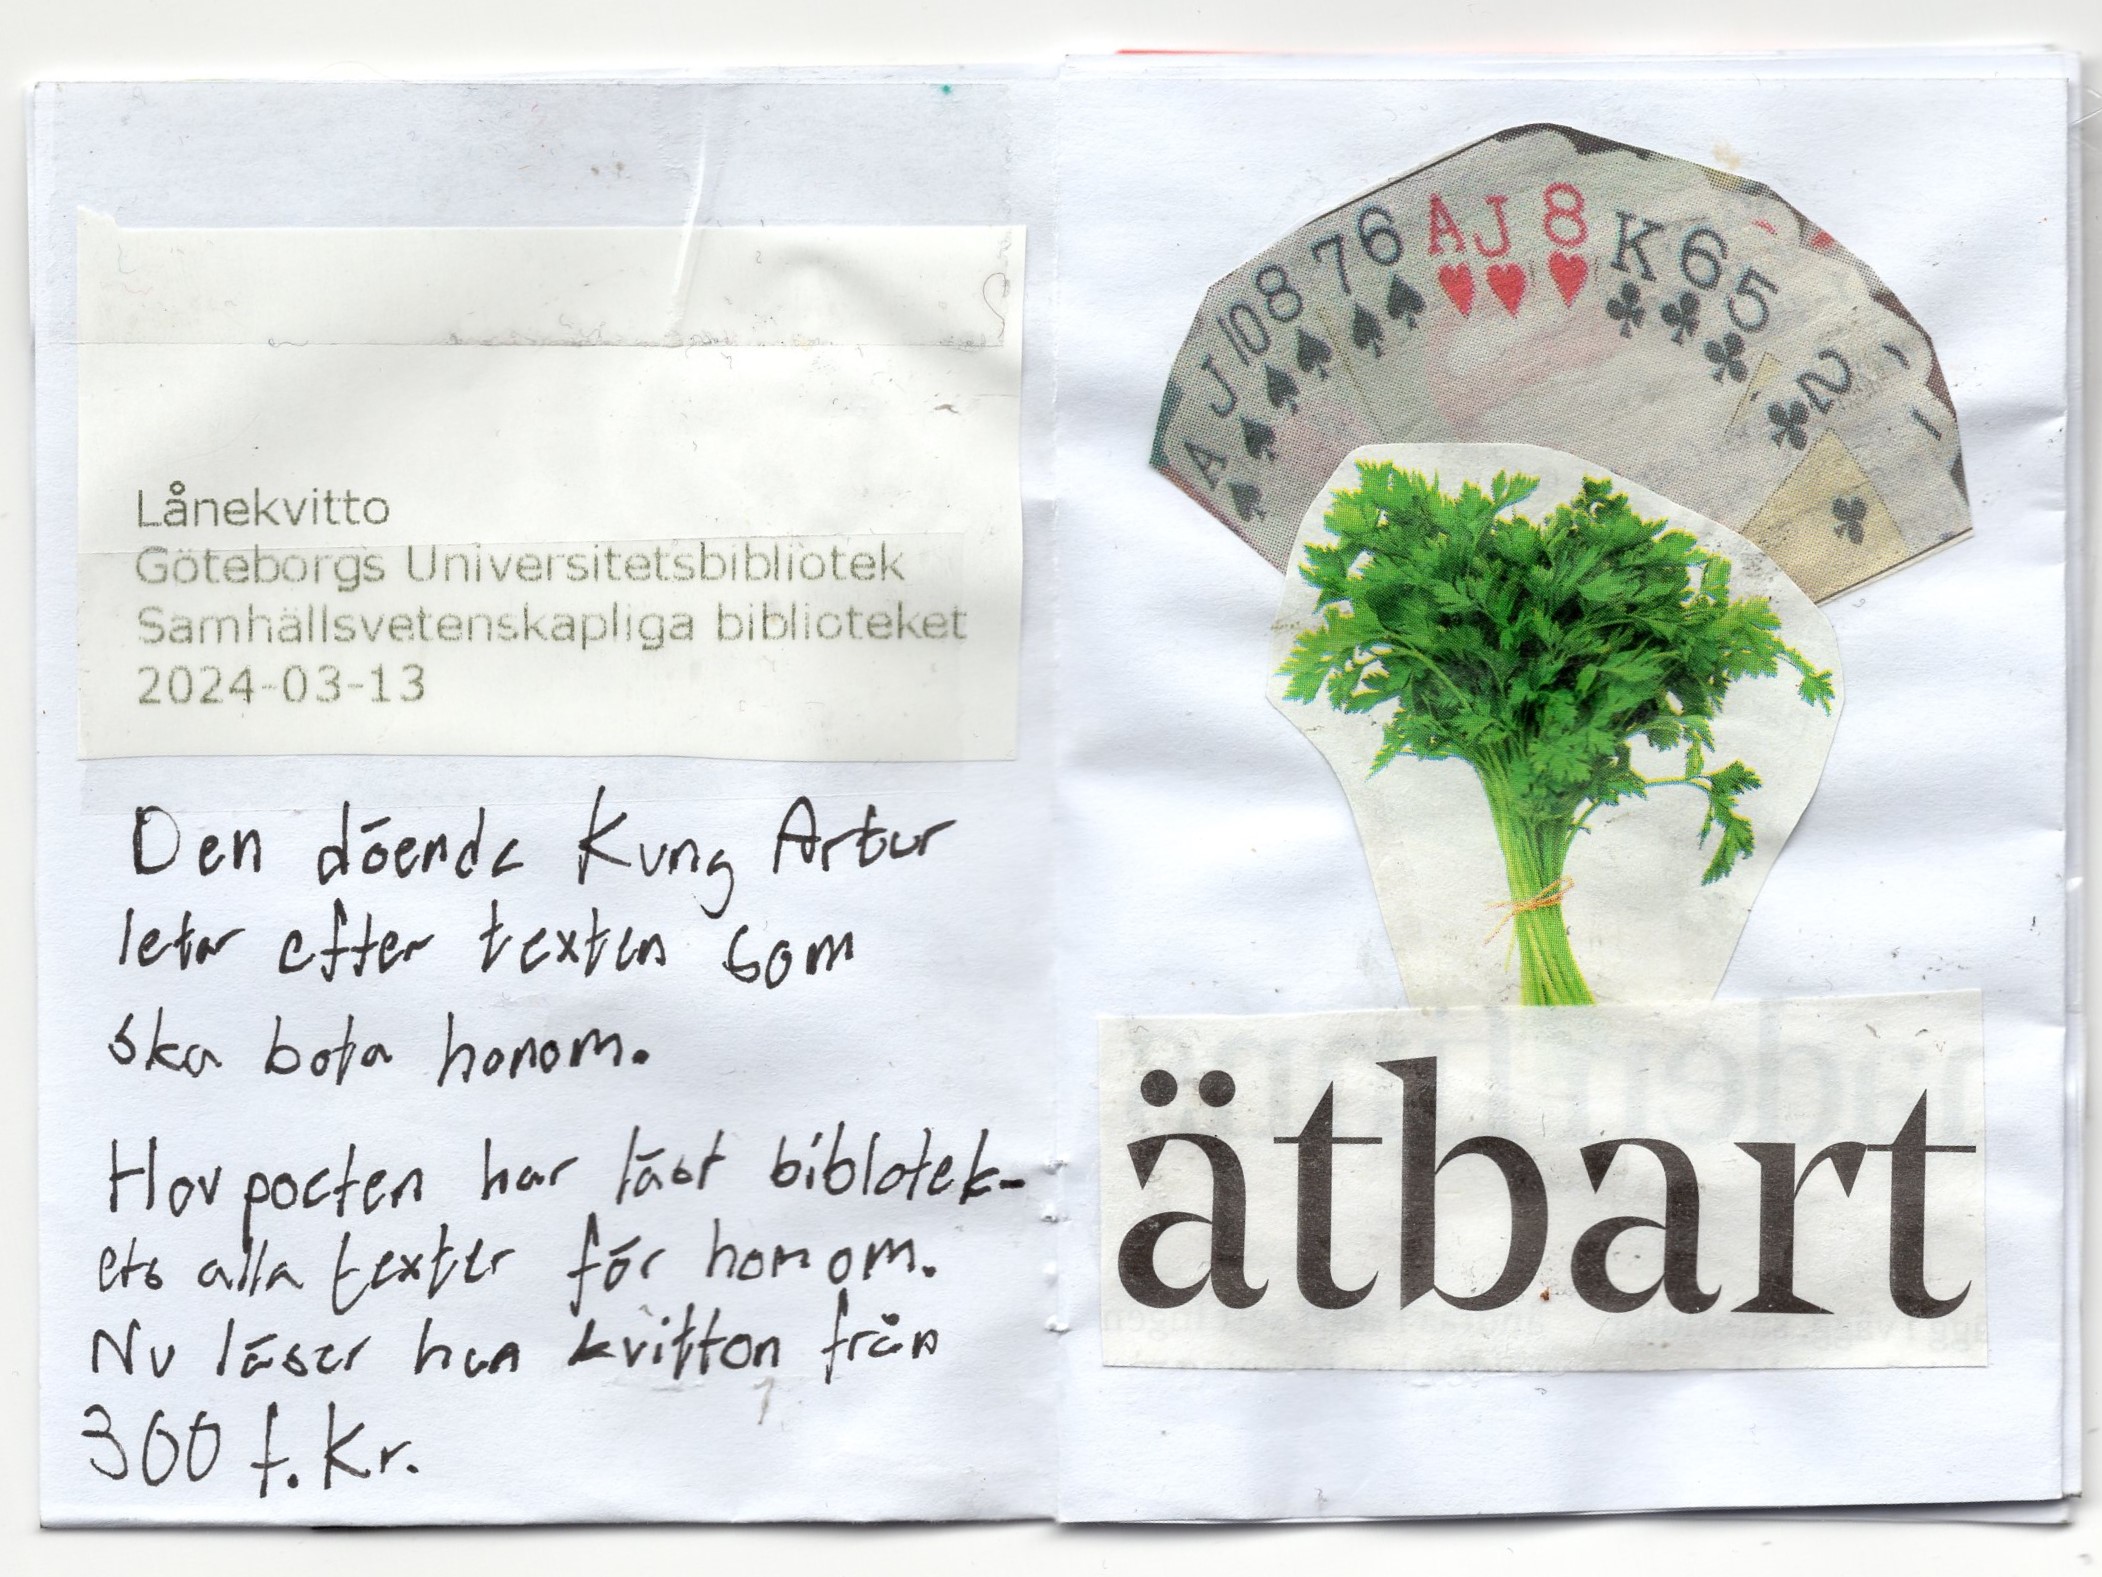 Lånekvitto
Göteborgs Universitetsbibliotek
Samhällsvetenskapliga biblioteket
2024-03-13
Den döende Kung Artur
letar efter texten som
ska bota honom.
Hovpoeten har läst bibliotek-
ets alla texter för honom.
Nu läser han kvitton från
300 f.Kr.
A J 10 8 7 6 A J 8 K 6 5 2
ätbart